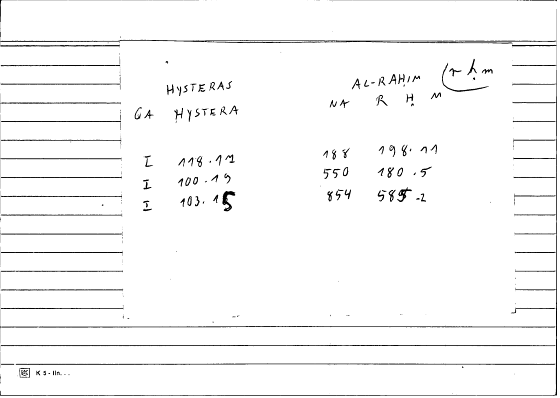 HYSTERAS AL-RAḤIM (rḥm
GA HYSTERA NA R Ḥ M
I 118.11 188 198.11
I 100.19 550 180.5
I 103.15 854 585.2
K 5 - lin. . .